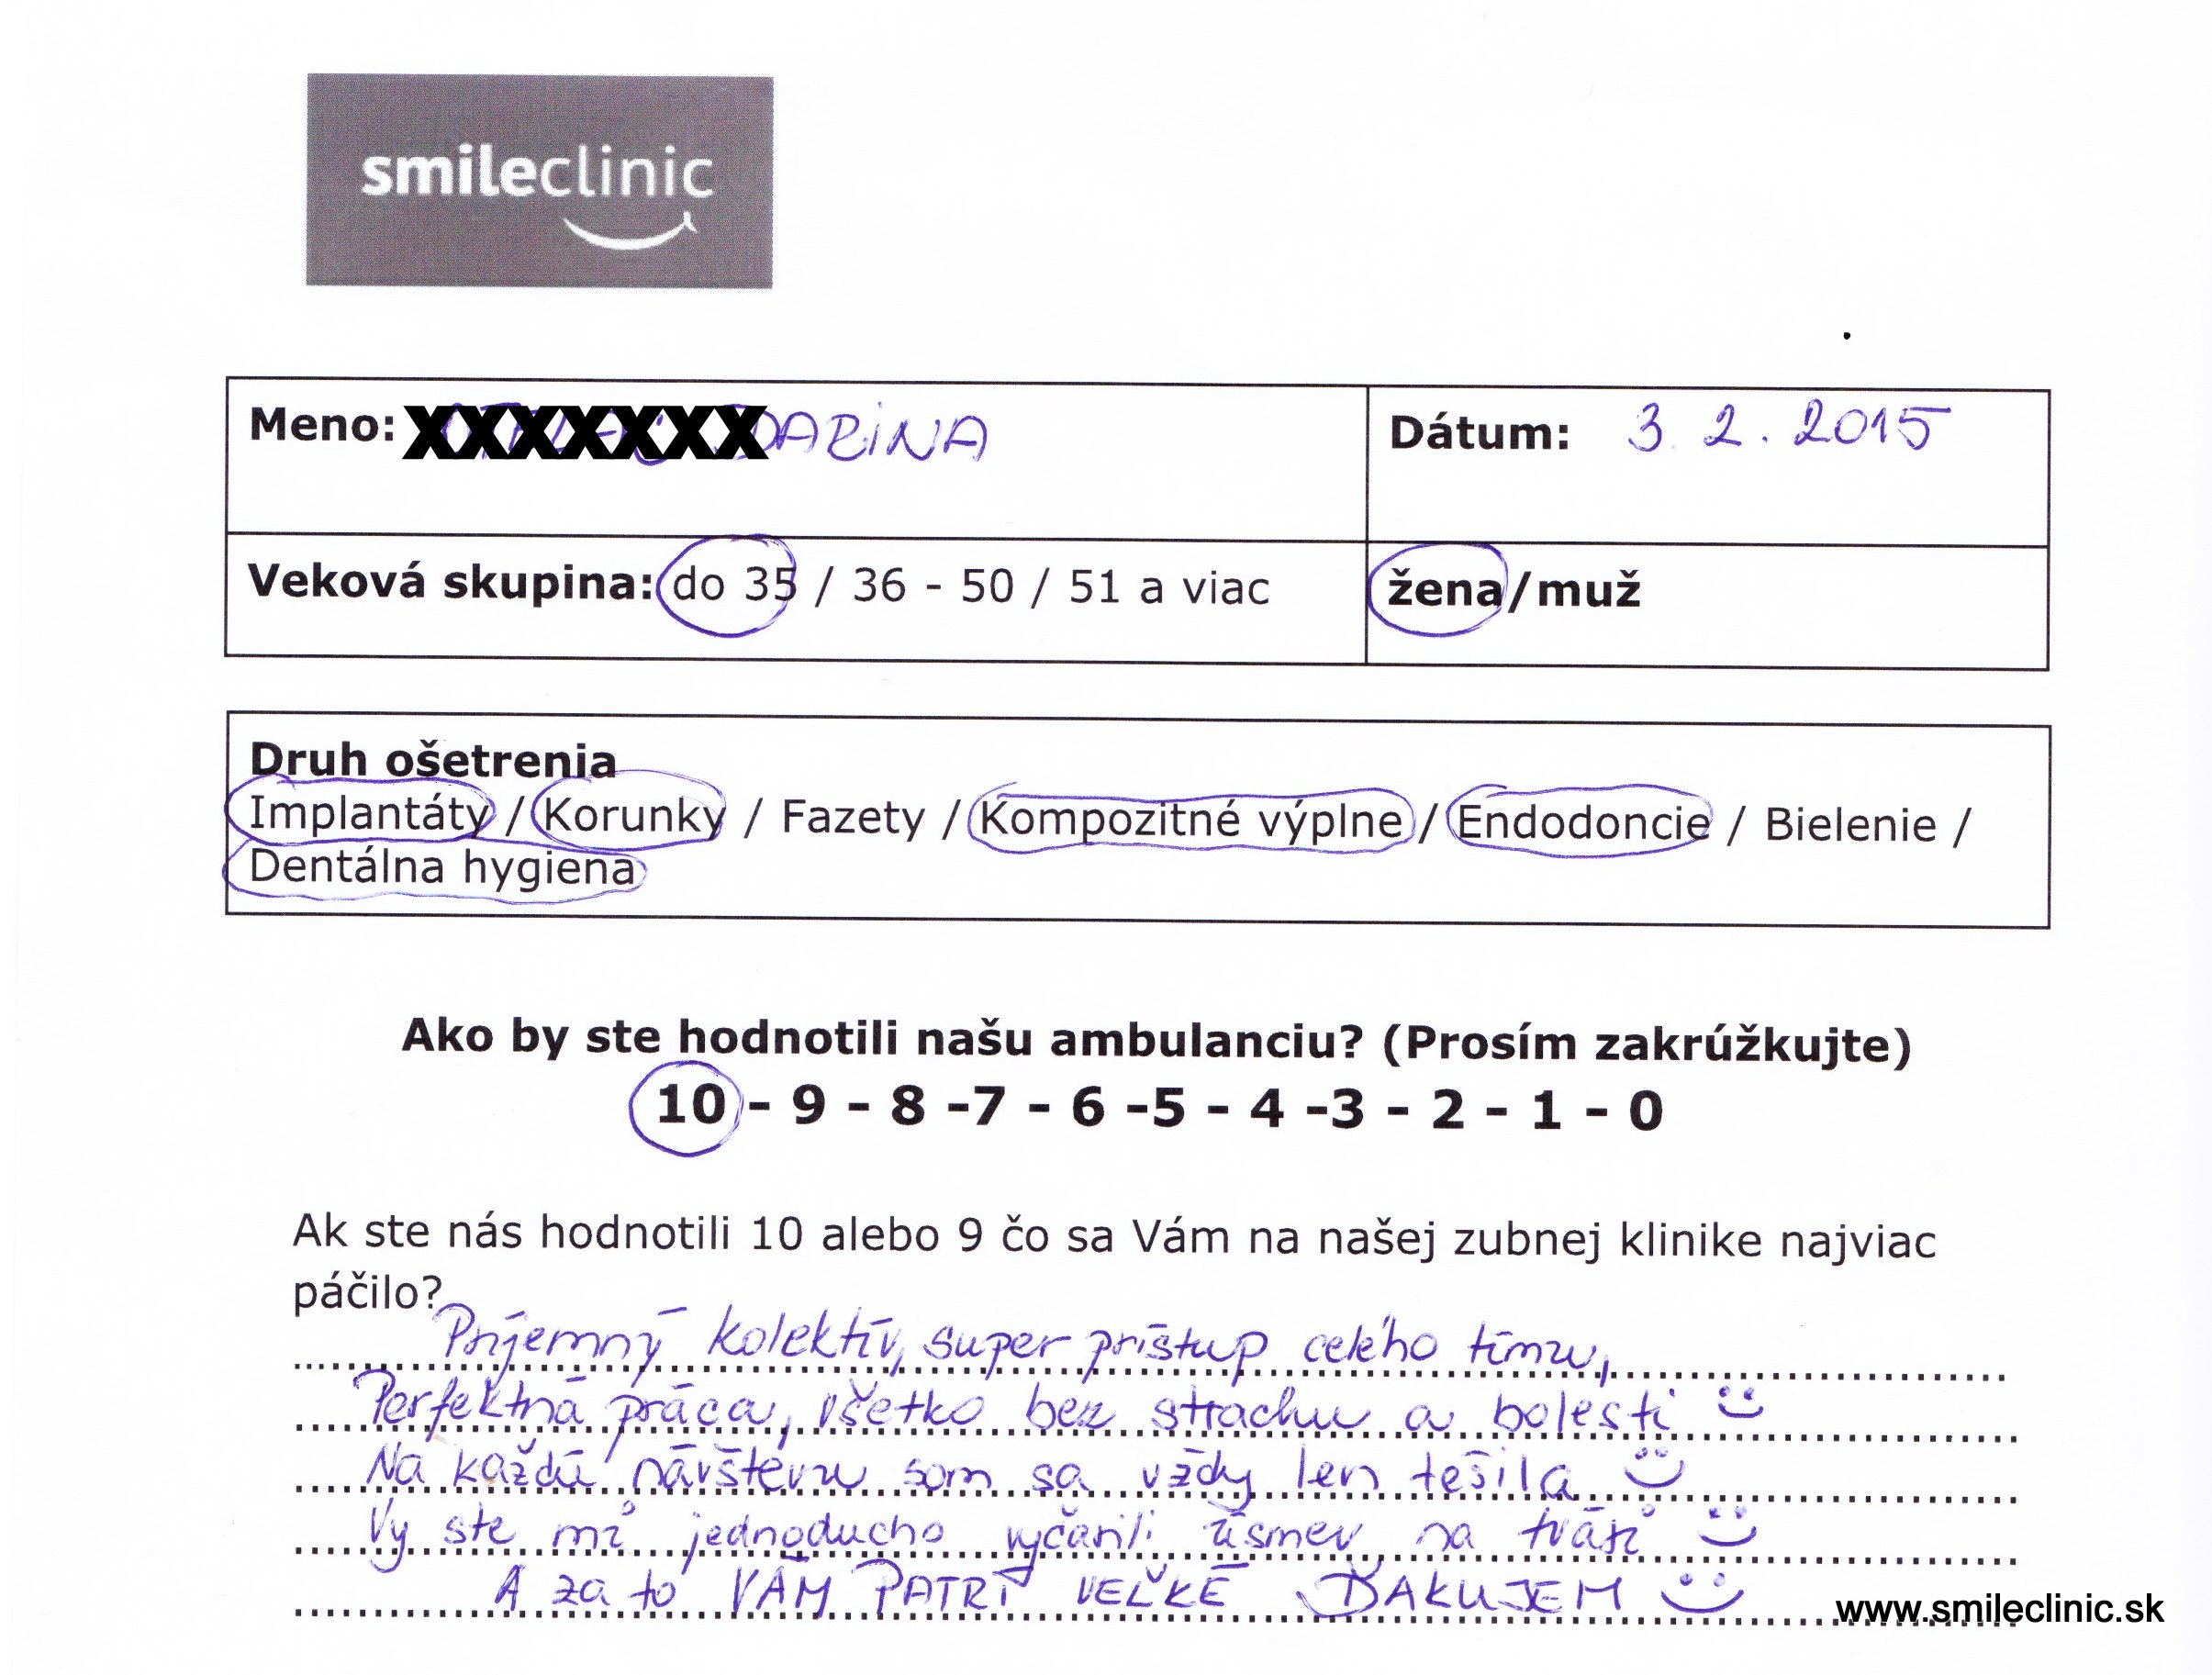 smileclinic
Meno: XXXXXXX DARINA
Dátum: 3. 2. 2015
Veková skupina: do 35 / 36 - 50 / 51 a viac
žena/muž
Druh ošetrenia
Implantáty / Korunky / Fazety / Kompozitné výplne / Endodoncie / Bielenie /
Dentálna hygiena
Ako by ste hodnotili našu ambulanciu? (Prosím zakrúžkujte)
10 - 9 - 8 -7 - 6 -5 - 4 -3 - 2 - 1 - 0
Ak ste nás hodnotili 10 alebo 9 čo sa Vám na našej zubnej klinike najviac
páčilo?
Príjemný kolektív, super prístup celého tímu,
Perfektná práca, všetko bez strachu a bolesti
Na každú návštevu som sa vždy len tešila
Vy ste mi jednoducho vyčarili úsmev na tvári
A za to VÁM PATRÍ VEĽKÉ ĎAKUJEM
www.smileclinic.sk